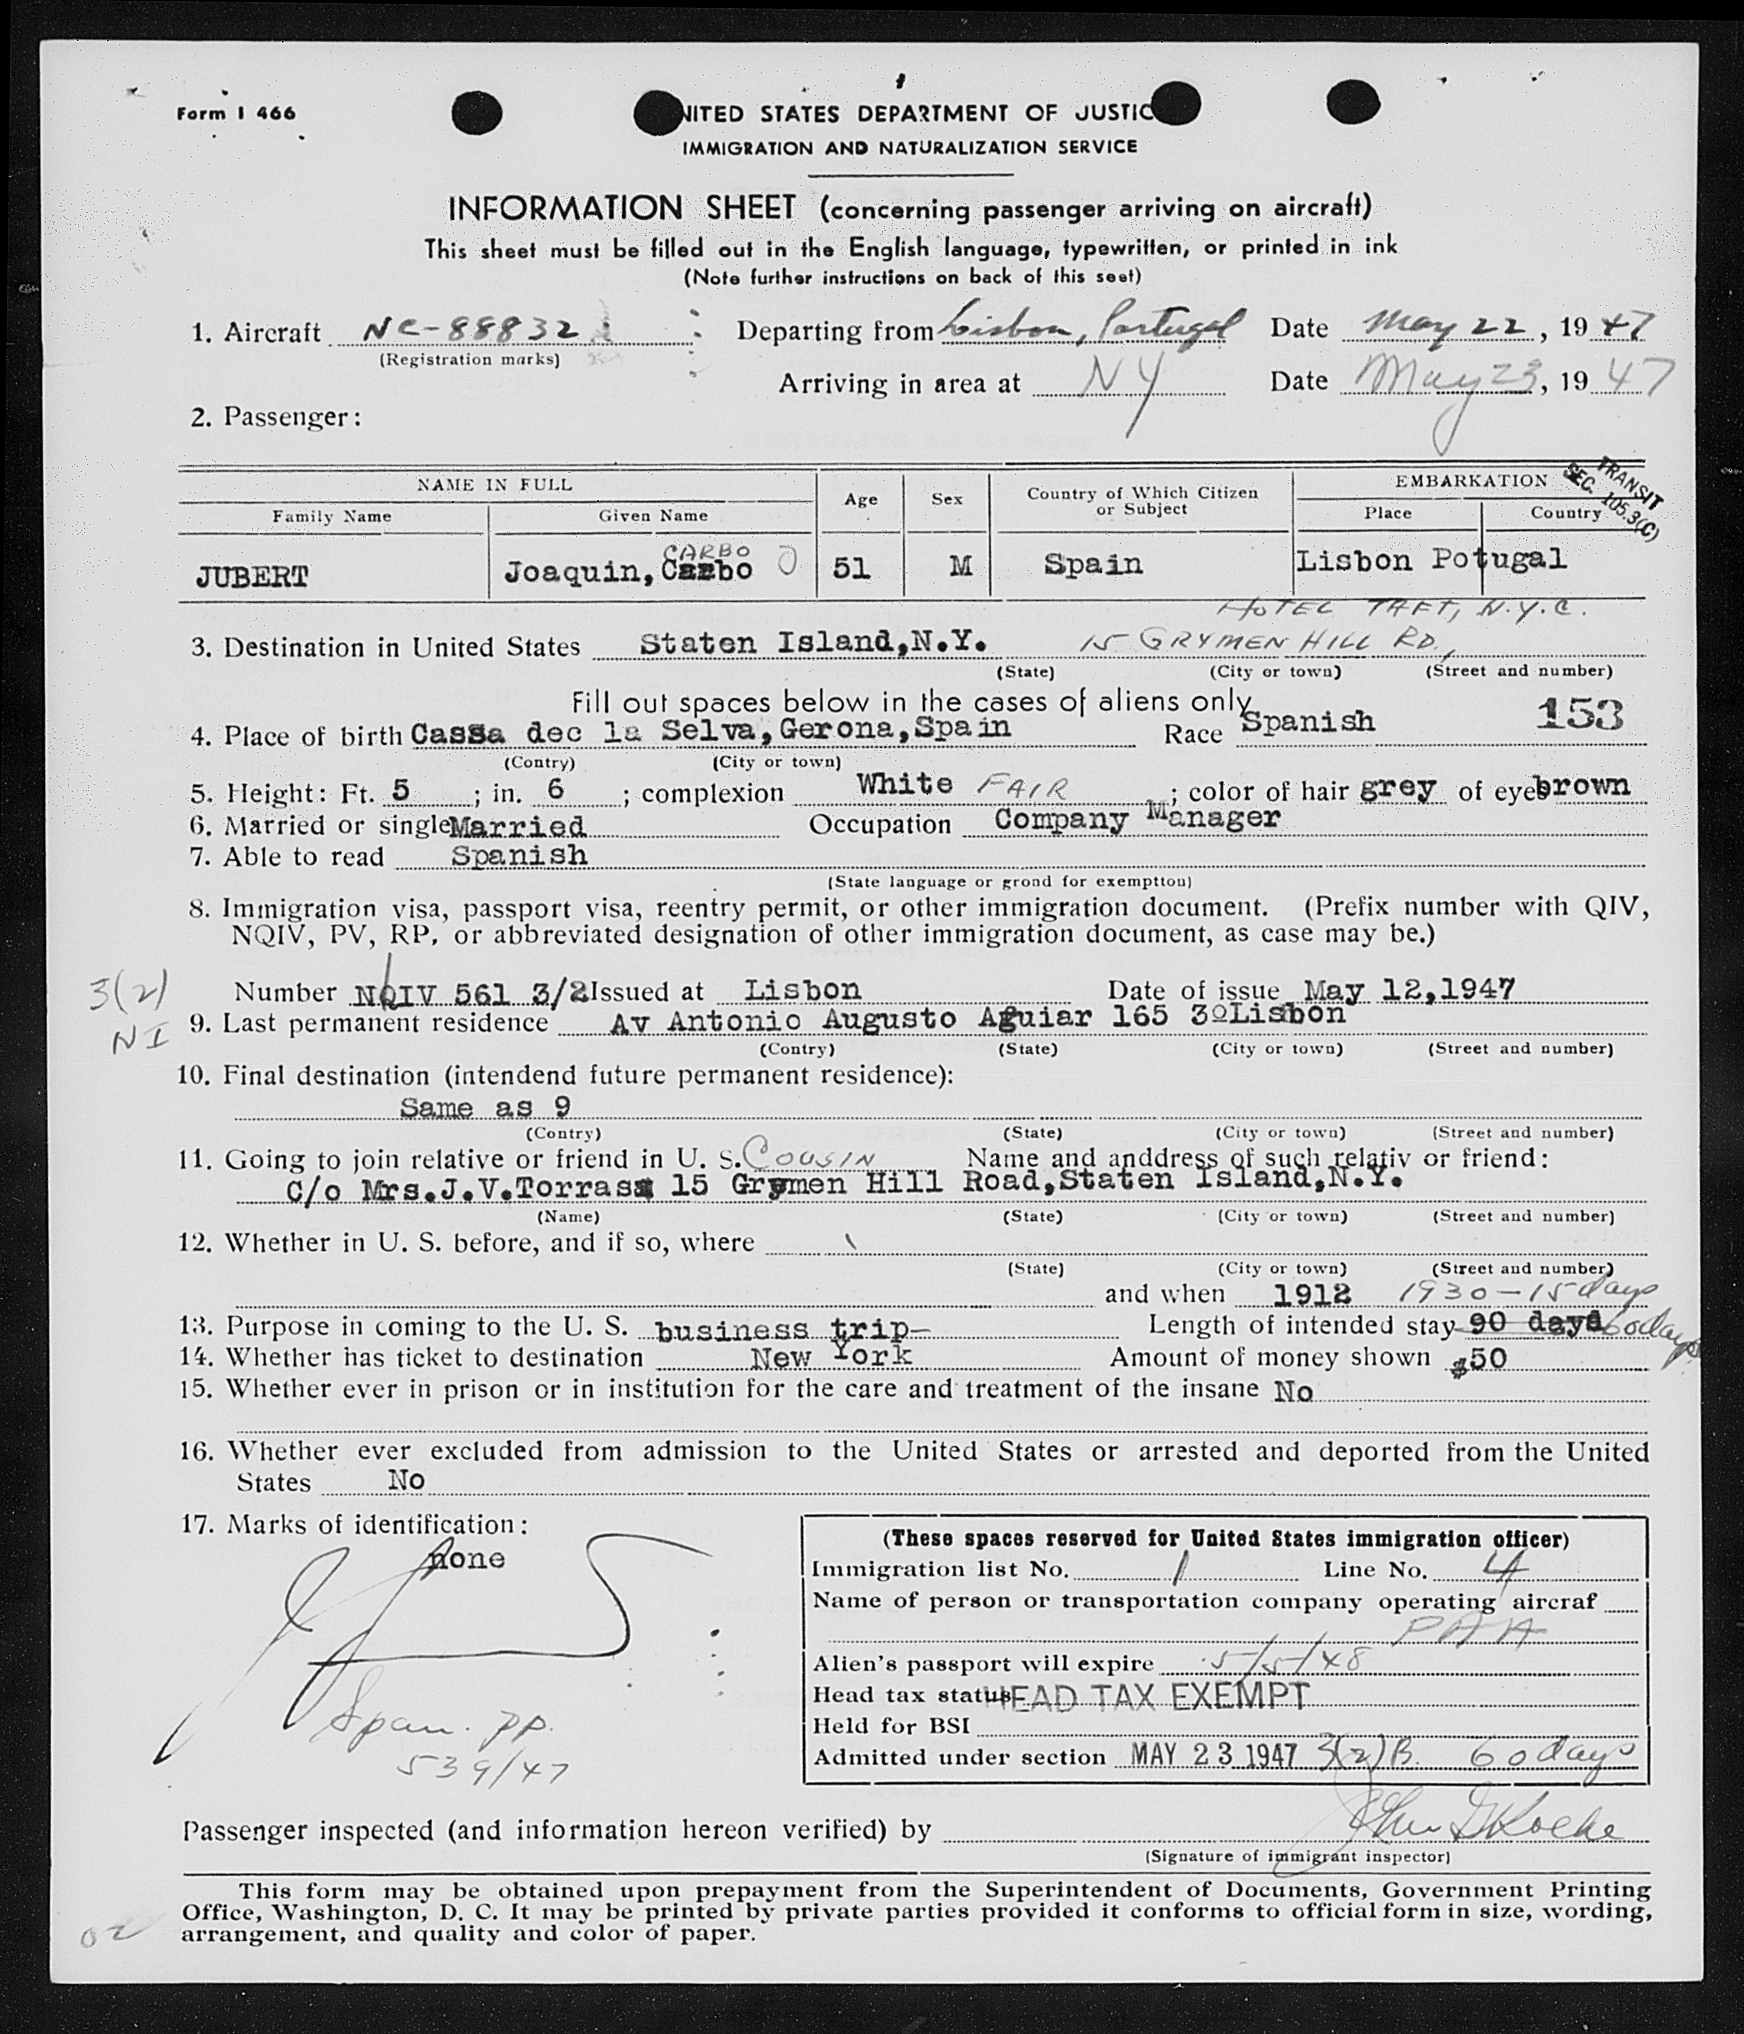 Form I 466
NITED STATES DEPARTMENT OF JUSTIC
IMMIGRATION AND NATURALIZATION SERVICE
INFORMATION SHEET (concerning passenger arriving on aircraft)
This sheet must be filled out in the English language, typewritten, or printed in ink
(Note further instructions on back of this seet)
1. Aircraft NC-88832 Departing from Lisbon, Portugal Date May 22, 1947
(Registration marks)
Arriving in area at NY Date May 23, 1947
2. Passenger:
TRANSIT
SEC. 105.3(C)
NAME IN FULL Age Sex Country of Which Citizen or Subject EMBARKATION
Family Name Given Name Place Country
CARBO
JUBERT Joaquin, Carbo 51 M Spain Lisbon Potugal
HOTEL TAFT, N.Y.C.
3. Destination in United States Staten Island,N.Y. 15 GRYMEN HILL RD.,
(State) (City or town) (Street and number)
Fill out spaces below in the cases of aliens only
4. Place of birth Cassa dec la Selva,Gerona,Spain Race Spanish 153
(Contry) (City or town)
5. Height: Ft. 5 ; in. 6 ; complexion White FAIR ; color of hair grey of eyes brown
6. Married or single Married Occupation Company Manager
7. Able to read Spanish
(State language or grond for exemptton)
8. Immigration visa, passport visa, reentry permit, or other immigration document. (Prefix number with QIV,
NQIV, PV, RP, or abbreviated designation of other immigration document, as case may be.)
3(2)
NI
Number NQIV 561 3/2 Issued at Lisbon Date of issue May 12,1947
9. Last permanent residence Av Antonio Augusto Aguiar 165 3º Lisbon
(Contry) (State) (City or town) (Street and number)
10. Final destination (intendend future permanent residence):
Same as 9
(Contry) (State) (City or town) (Street and number)
11. Going to join relative or friend in U. S. COUSIN Name and anddress of such relativ or friend:
C/o Mrs.J.V.Torras 15 Grymen Hill Road,Staten Island,N.Y.
(Name) (State) (City or town) (Street and number)
12. Whether in U. S. before, and if so, where
(State) (City or town) (Street and number)
and when 1912 1930-15 days
13. Purpose in coming to the U. S. business trip- Length of intended stay 90 days 60 days
14. Whether has ticket to destination New York Amount of money shown $50
15. Whether ever in prison or in institution for the care and treatment of the insane No
16. Whether ever excluded from admission to the United States or arrested and deported from the United
States No
17. Marks of identification:
none
Span. pp.
539/47
(These spaces reserved for United States immigration officer)
Immigration list No. 1 Line No. 4
Name of person or transportation company operating aircraf
PAA
Alien's passport will expire 5/5/48
Head tax status HEAD TAX EXEMPT
Held for BSI
Admitted under section MAY 23 1947 3(2)B. 60 days
Passenger inspected (and information hereon verified) by
(Signature of immigrant inspector)
This form may be obtained upon prepayment from the Superintendent of Documents, Government Printing
Office, Washington, D. C. It may be printed by private parties provided it conforms to official form in size, wording,
arrangement, and quality and color of paper.
02